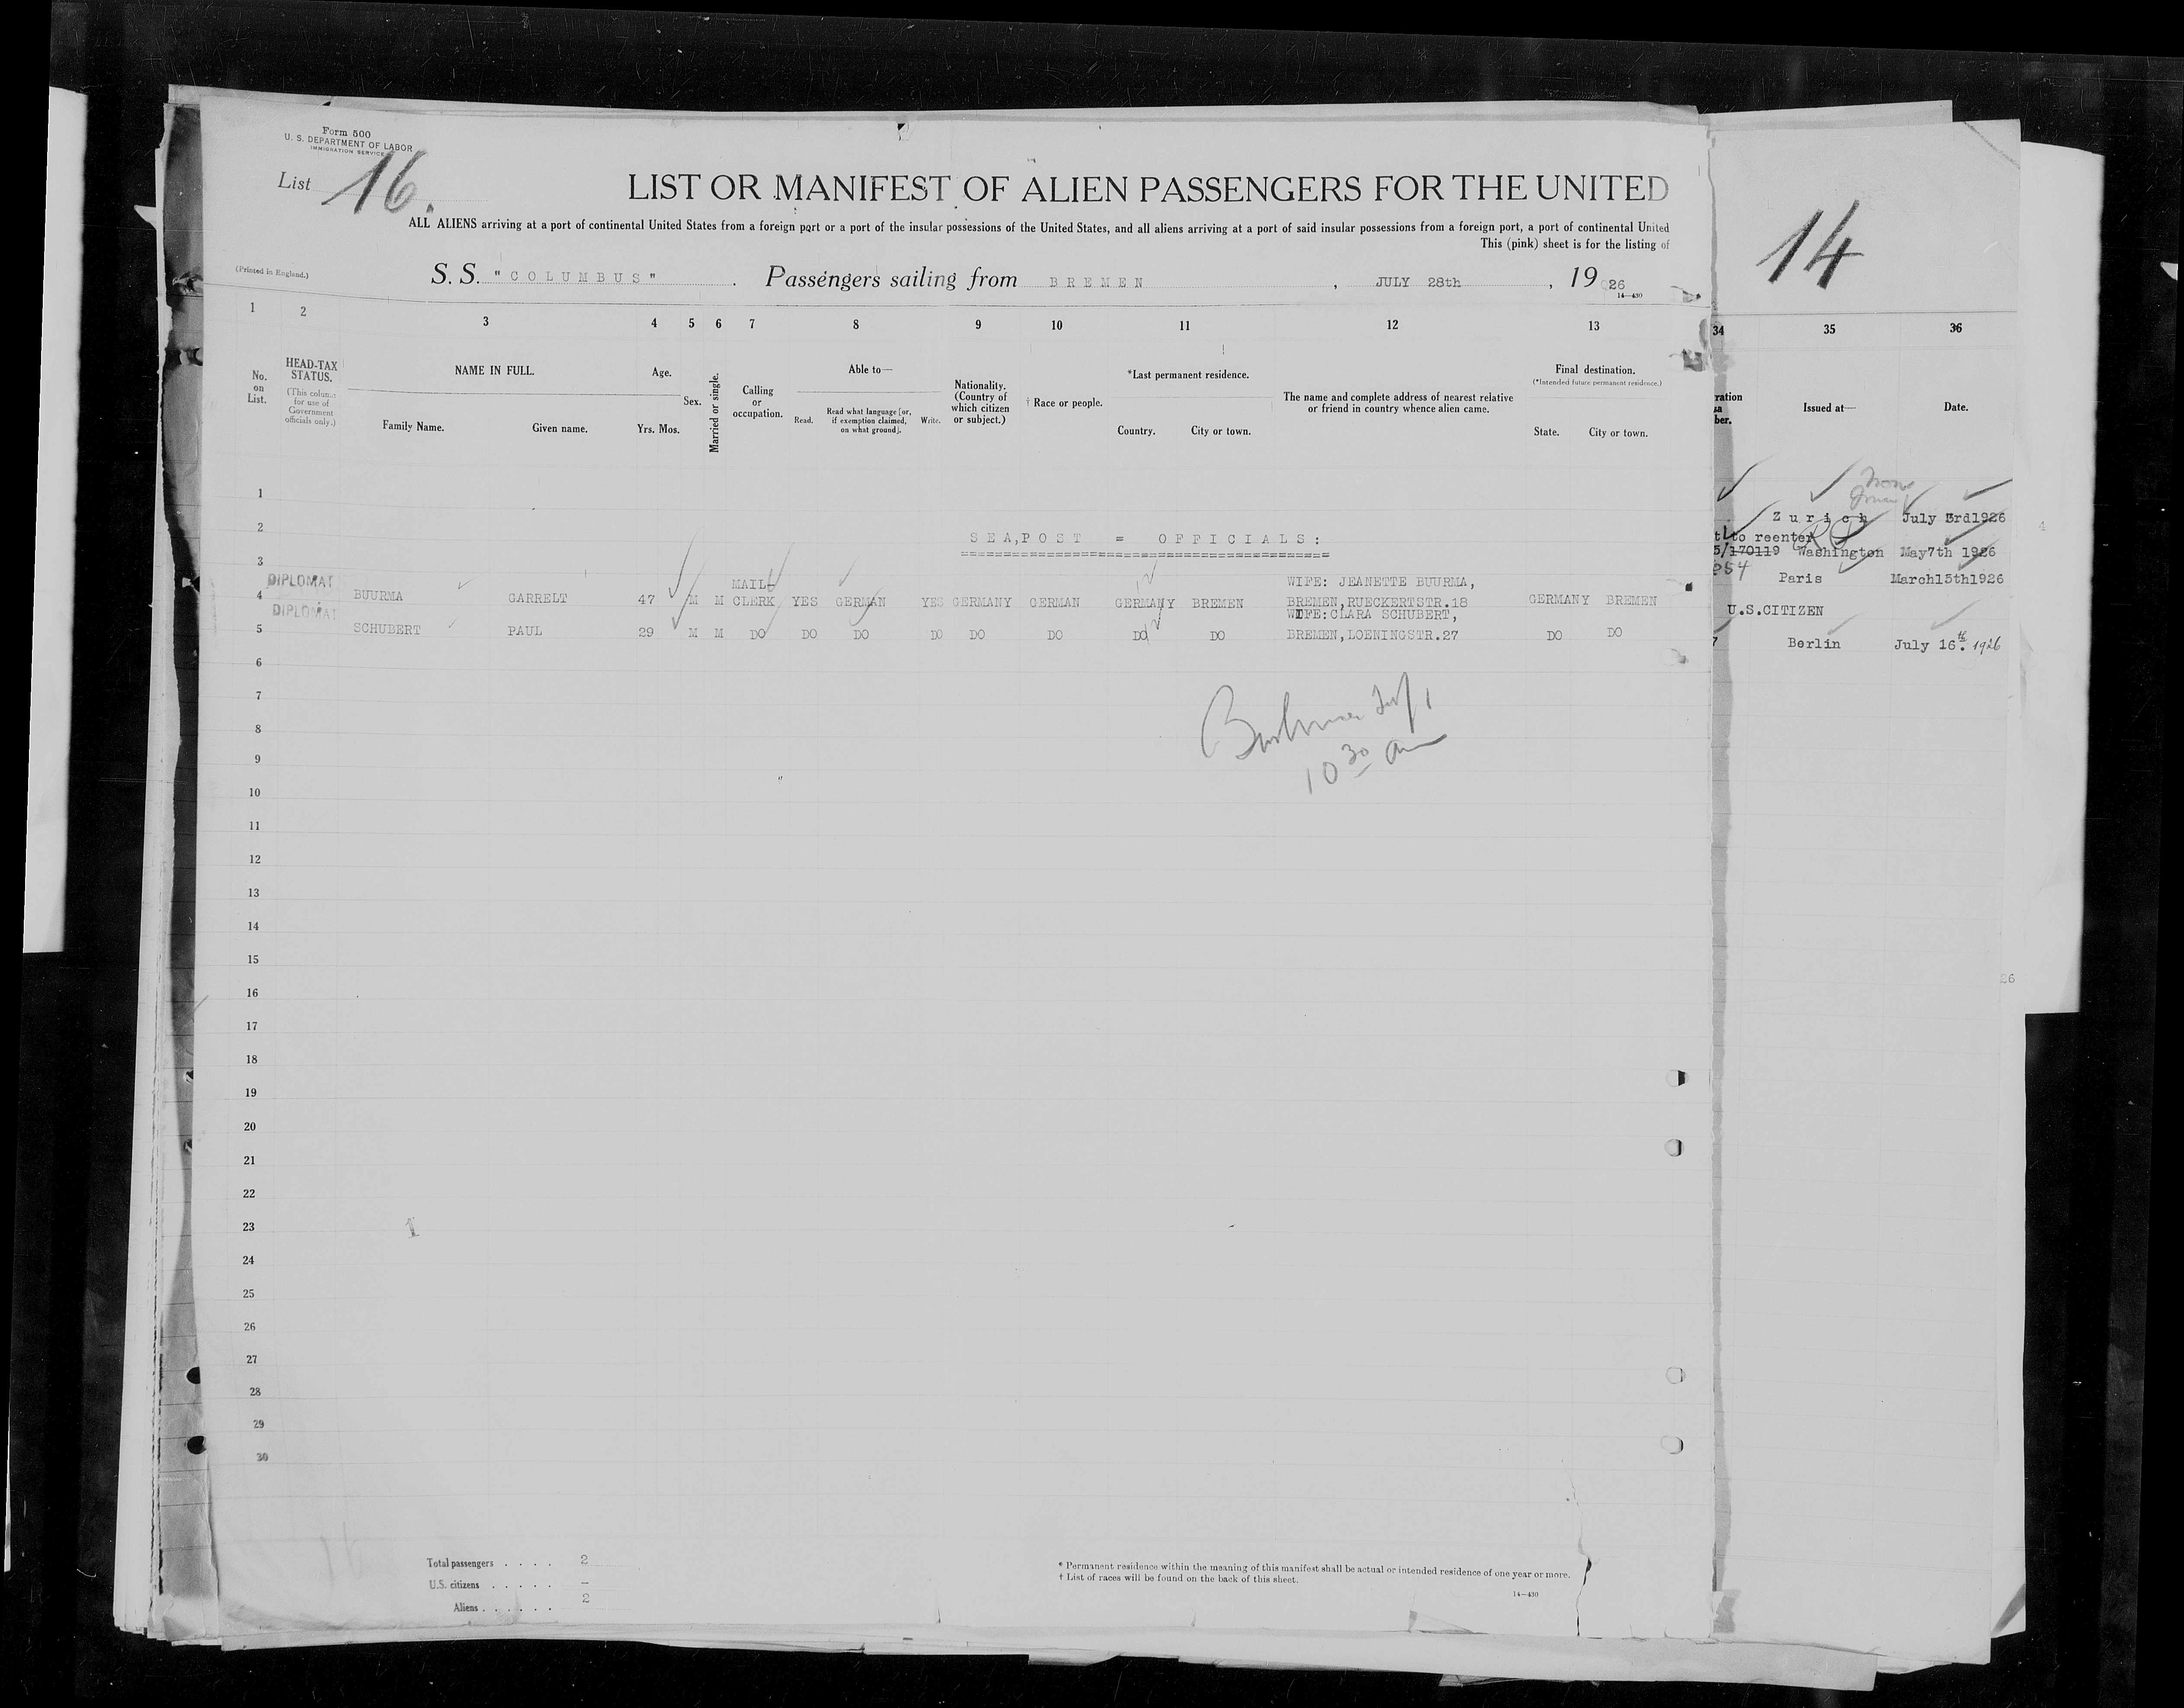 Form 500
U. S. DEPARTMENT OF LABOR
IMMIGRATION SERVICE
List 16.
LIST OR MANIFEST OF ALIEN PASSENGERS FOR THE UNITED
ALL ALIENS arriving at a port of continental United States from a foreign port or a port of the insular possessions of the United States, and all aliens arriving at a port of said insular possessions from a foreign port, a port of continental United
This (pink) sheet is for the listing of
(Printed in England.)
S. S. "COLUMBUS". Passengers sailing from BREMEN, JULY 28th, 1926
14—430
1 2 3 4 5 6 7 8 9 10 11 12 13
No. on List.
HEAD-TAX STATUS.
(This column for use of Government officials only.)
NAME IN FULL.
Family Name. Given name.
Age.
Yrs. Mos.
Sex.
Married or single.
Calling or occupation.
Able to—
Read. Read what language [or, if exemption claimed, on what ground]. Write.
Nationality. (Country of which citizen or subject.)
† Race or people.
*Last permanent residence.
Country. City or town.
The name and complete address of nearest relative or friend in country whence alien came.
Final destination.
(*Intended future permanent residence.)
State. City or town.
1
2 SEA,POST = OFFICIALS:
3
DIPLOMAT
4 BUURMA GARRELT 47 M M MAIL- CLERK YES GERMAN YES GERMANY GERMAN GERMANY BREMEN WIFE: JEANETTE BUURMA, BREMEN,RUECKERTSTR.18 GERMANY BREMEN
DIPLOMAT
5 SCHUBERT PAUL 29 M M DO DO DO DO DO DO DO DO WIFE:CLARA SCHUBERT, BREMEN,LOENINGSTR.27 DO DO
6
7
8
9
10 30 am
10
11
12
13
14
15
16
17
18
19
20
21
22
23
24
25
26
27
28
29
30
Total passengers . . . . 2
U.S. citizens . . . . . —
Aliens . . . . . . 2
* Permanent residence within the meaning of this manifest shall be actual or intended residence of one year or more.
† List of races will be found on the back of this sheet.
14—430
14
34 35 36
ration
sa
ber.
Issued at—
Date.
Non
Zurich July 3rd1926
to reenter
5/170119 Washington May7th 1926
254 Paris March15th1926
U.S.CITIZEN
7 Berlin July 16th. 1926
4
26